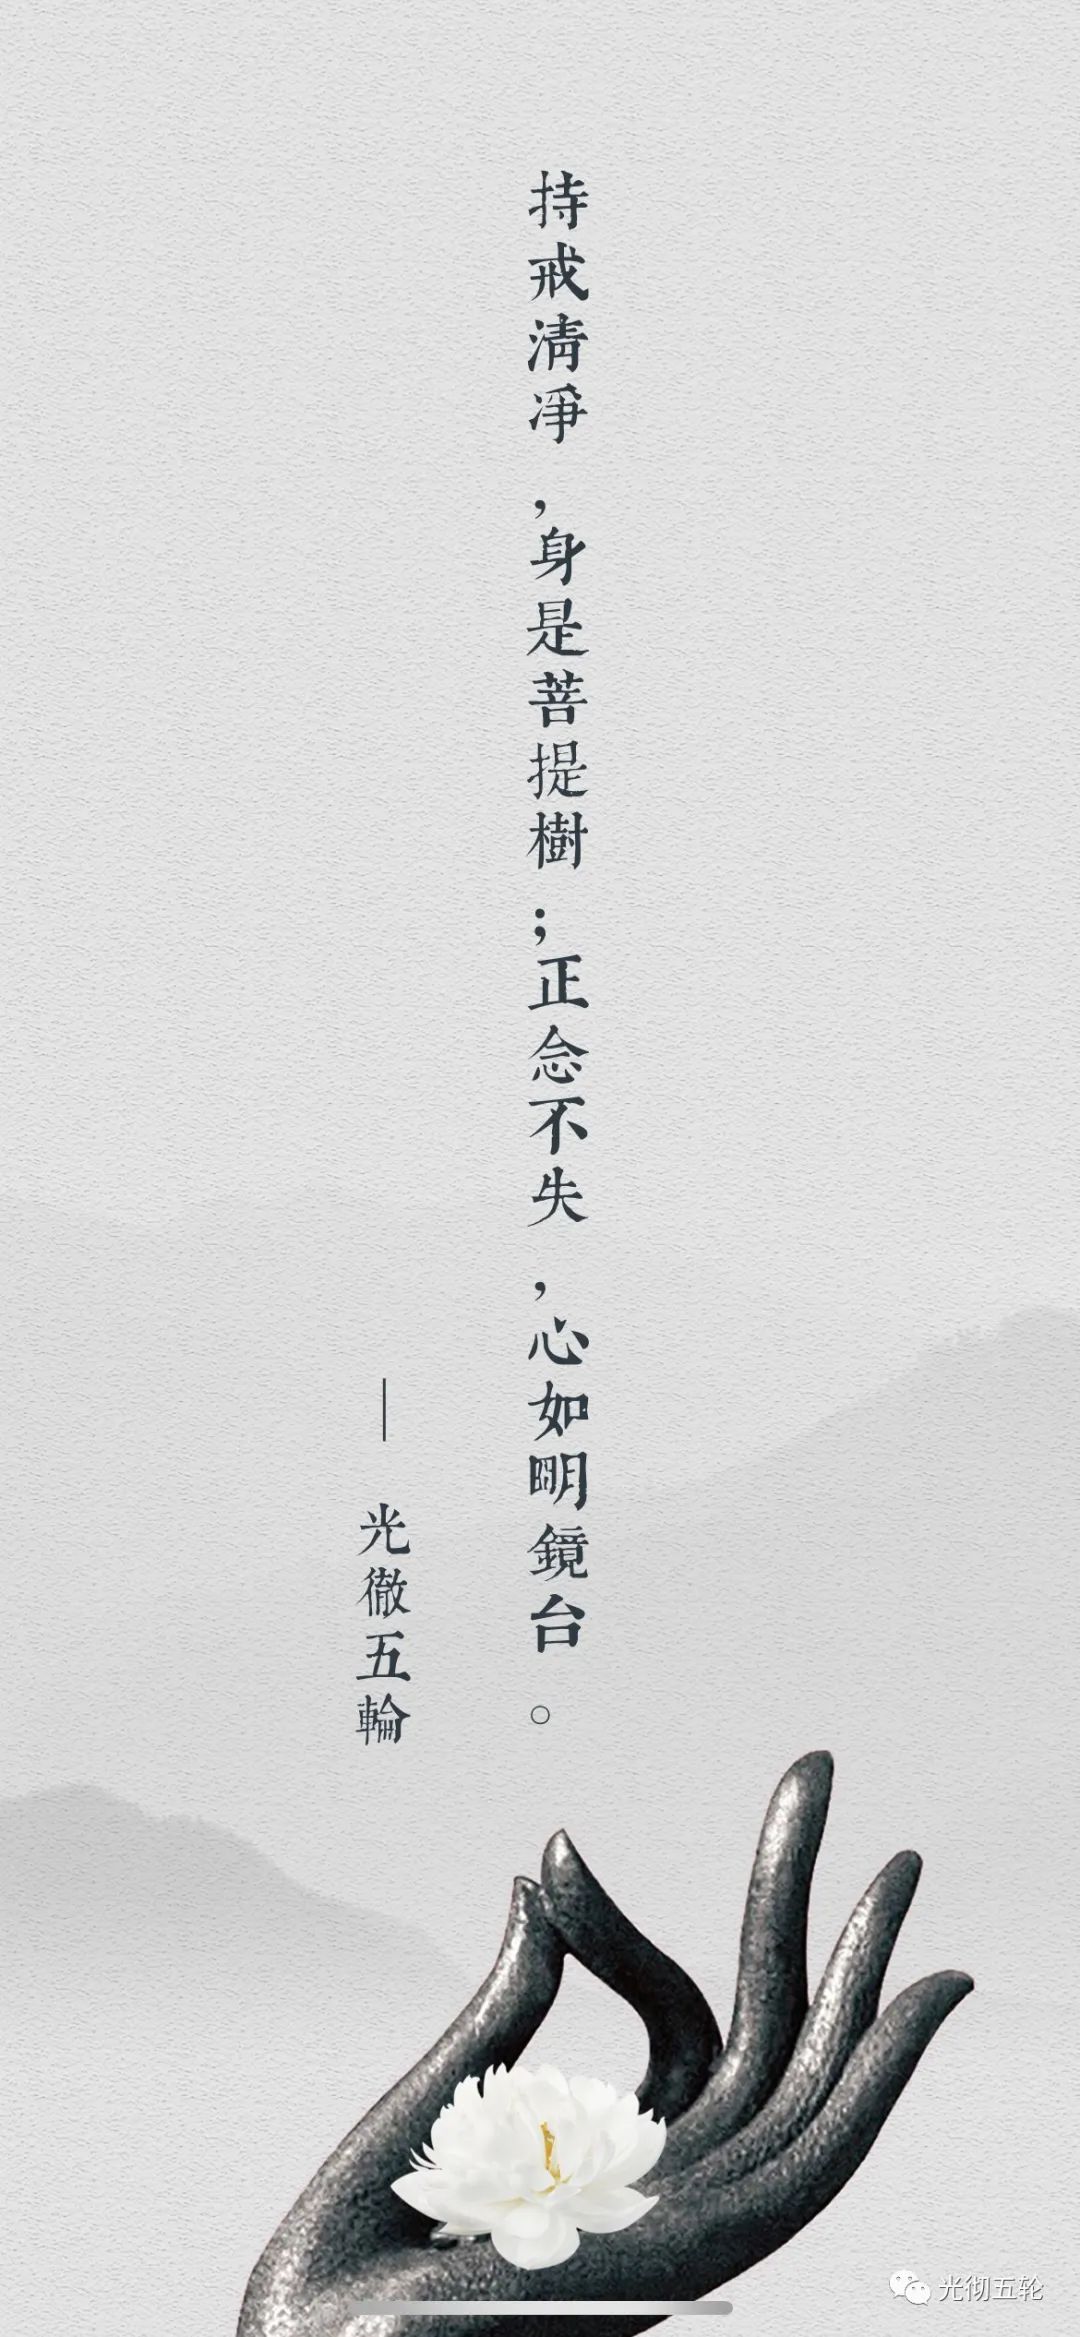 持戒清淨，身是菩提樹；正念不失，心如明鏡台。
—光徹五輪
光彻五轮